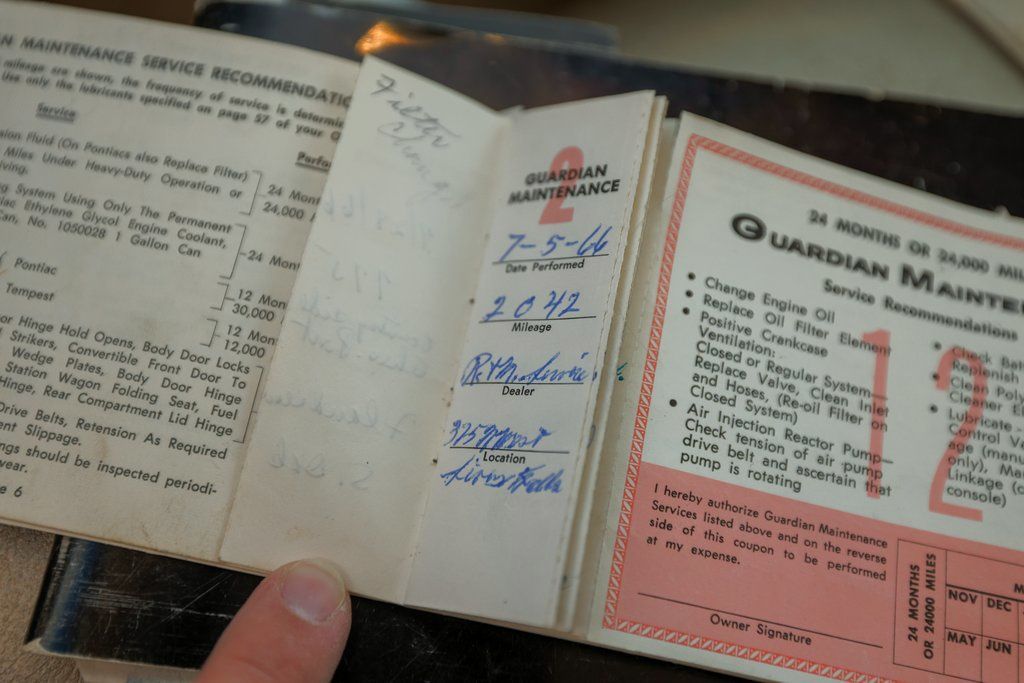 N MAINTENANCE SERVICE RECOMMENDATIO
mileage are shown, the frequency of service is determi
Use only the lubricants specified on page 57 of your O
Service
Perfo
sion Fluid (On Pontiacs also Replace Filter)
Miles Under Heavy-Duty Operation or
ving.
24 Mont
24,000
g System Using Only The Permanent
iac Ethylene Glycol Engine Coolant,
Can, No. 1050028 1 Gallon Can
24 Mont
Pontiac
12 Mon
30,000
Tempest
12 Mon
12,000
or Hinge Hold Opens, Body Door Locks
Strikers, Convertible Front Door To
Wedge Plates, Body Door Hinge
Station Wagon Folding Seat, Fuel
Hinge, Rear Compartment Lid Hinge
Drive Belts, Retension As Required
ent Slippage.
ngs should be inspected periodi-
wear.
e 6
Filter
Change
2
GUARDIAN
MAINTENANCE
7-5-66
Date Performed
2042
Mileage
Service
Dealer
325 West
Location
Falls
24 MONTHS OR 24,000 MIL
GUARDIAN MAINTEN
Service Recommendations
12
• Change Engine Oil
• Replace Oil Filter Element
• Positive Crankcase
Ventilation:
Closed or Regular System—
Replace Valve, Clean Inlet
and Hoses, (Re-oil Filter on
Closed System)
• Air Injection Reactor Pump—
Check tension of air pump
drive belt and ascertain that
pump is rotating
• Check Batt
Replenish
• Clean Poly
Cleaner El
• Lubricate -
Control Va
age (manu
only), Ma
Linkage (c
console)
I hereby authorize Guardian Maintenance
Services listed above and on the reverse
side of this coupon to be performed
at my expense.
Owner Signature
24 MONTHS
OR 24000 MILES
M
NOV DEC
MAY JUN